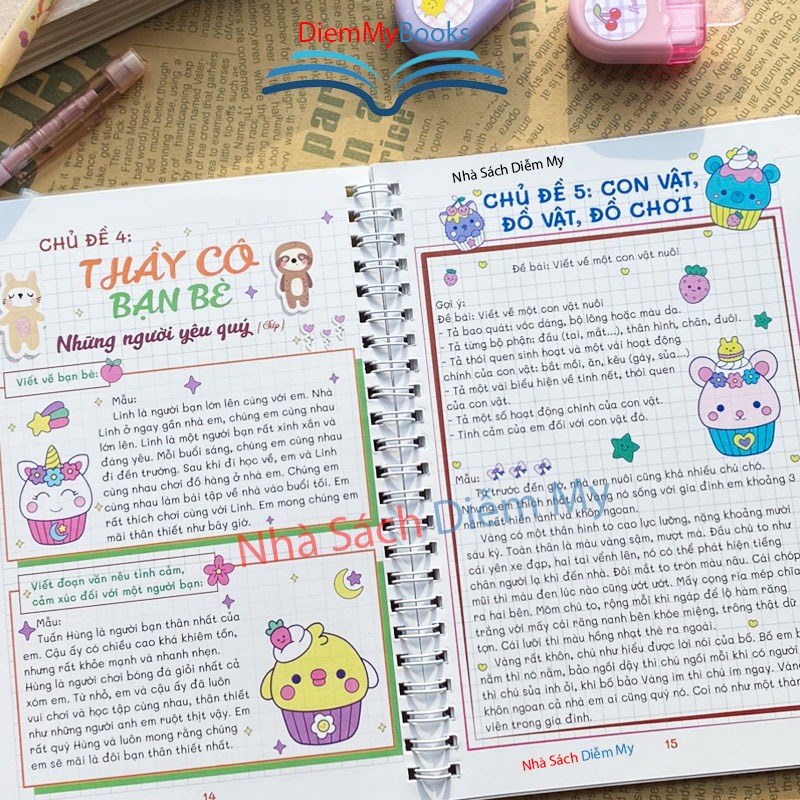 DiemMyBooks
Nhà Sách Diễm My
CHỦ ĐỀ 4:
THẦY CÔ
BẠN BÈ
Những người yêu quý (Tiếp)
Viết về bạn bè:
Mẫu:
Linh là người bạn lớn lên cùng với em. Nhà
Linh ở ngay gần nhà em, chúng em cùng nhau
lớn lên. Linh là một người bạn rất xinh xắn và
đáng yêu. Mỗi buổi sáng, chúng em cùng nhau
đi đến trường. Sau khi đi học về, em và Linh
cùng nhau chơi đồ hàng ở nhà em. Chúng em
cùng nhau làm bài tập về nhà vào buổi tối. Em
rất thích chơi cùng với Linh. Em mong chúng em
mãi thân thiết như bây giờ.
Viết đoạn văn nêu tình cảm,
cảm xúc đối với một người bạn:
Mẫu:
Tuấn Hùng là người bạn thân nhất của
em. Cậu ấy có chiều cao khá khiêm tốn,
nhưng rất khỏe mạnh và nhanh nhẹn.
Hùng là người chơi bóng đá giỏi nhất cả
xóm em. Từ nhỏ, em và cậu ấy đã luôn
vui chơi và học tập cùng nhau, thân thiết
như những người anh em ruột thịt vậy. Em
rất quý Hùng và luôn mong rằng chúng
em sẽ mãi là đôi bạn thân thiết nhất.
14
CHỦ ĐỀ 5: CON VẬT,
ĐỒ VẬT, ĐỒ CHƠI
Đề bài: Viết về một con vật nuôi
Gợi ý:
Đề bài: Viết về một con vật nuôi
- Tả bao quát: vóc dáng, bộ lông hoặc màu da.
- Tả từng bộ phận: đầu (tai, mắt...), thân hình, chân, đuôi.
- Tả thói quen sinh hoạt và một vài hoạt động
chính của con vật: bắt mồi, ăn, kêu (gáy, sủa...)
- Tả một vài biểu hiện về tính nết, thói quen
của con vật.
- Tả một số hoạt động chính của con vật.
- Tình cảm của em đối với con vật đó.
Mẫu:
Từ trước đến giờ, nhà em nuôi cũng khá nhiều chú chó.
Nhưng em thích nhất là Vàng nó sống với gia đình em khoảng 3
năm rất hiền lành và khôn ngoan.
Vàng có một thân hình to cao lực lưỡng, nặng khoảng mười
sáu ký. Toàn thân là màu vàng sậm, mượt mà. Đầu chú to như
cái yên xe đạp, hai tai vểnh lên, nó có thể phát hiện tiếng
chân người lạ khi đến nhà. Đôi mắt to tròn màu nâu. Cái chóp
mũi thì màu đen lúc nào cũng ươn ướt. Mấy cọng ria mép chĩa
ra hai bên. Mõm chú to, rộng mỗi khi ngáp để lộ hàm răng
trắng với mấy cái răng nanh bén khỏe miệng, trông thật dữ
tợn. Cái lưỡi thì màu hồng nhạt thè ra ngoài.
Vàng rất khôn, chú như hiểu được lời nói của bố. Bố em b
nằm thì nó nằm, bảo ngồi dậy thì chú ngồi mỗi khi có người
thì chú sủa inh ỏi, khi bố bảo Vàng im thì chú im ngay. Vàng
khôn ngoan cả nhà em ai cũng quý nó. Coi nó như một thàn
viên trong gia đình.
Nhà Sách Diễm My
Nhà Sách Diễm My
15